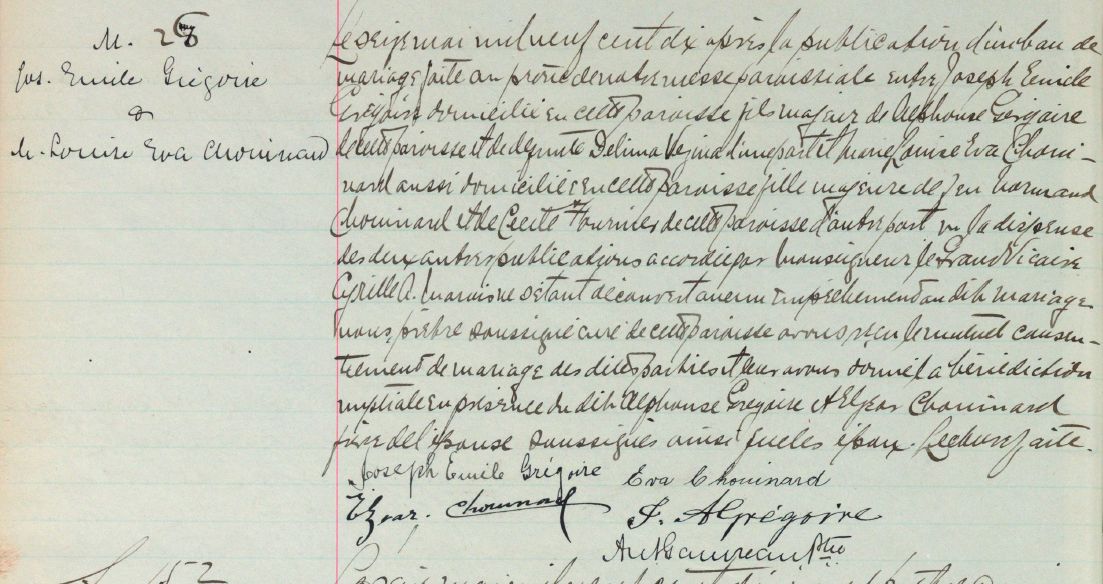 M. 28
Jos. Emile Grégoire
&
M. Louise Eva Chouinard
Le seize mai mil neuf cent dix après la publication d'un ban de
mariage faite au prône de notre messe paroissiale entre Joseph Emile
Grégoire domicilié en cette paroisse fils majeur de Alphonse Grégoire
de cette paroisse et de défunte Delima Vezina d'une part et Marie Louise Eva Choui-
nard aussi domiciliée en cette paroisse fille majeure de feu Normand
Chouinard et de Cecile Fournier de cette paroisse d'autre part vu la dispense
des deux autres publications accordée par Monseigneur le Grand Vicaire
Cyrille A. Marois ne s'étant découvert aucun empêchement au dit mariage
nous, prêtre soussigné curé de cette paroisse avons reçu le mutuel consen-
tement de mariage des dites parties et leur avons donné la bénédiction
nuptiale en présence du dit Alphonse Grégoire et Elzear Chouinard
frère de l'épouse soussignés ainsi que les époux. Lecture faite.
Joseph Emile Grégoire Eva Chouinard
Elzear. Chouinard J. A Grégoire
Ptre